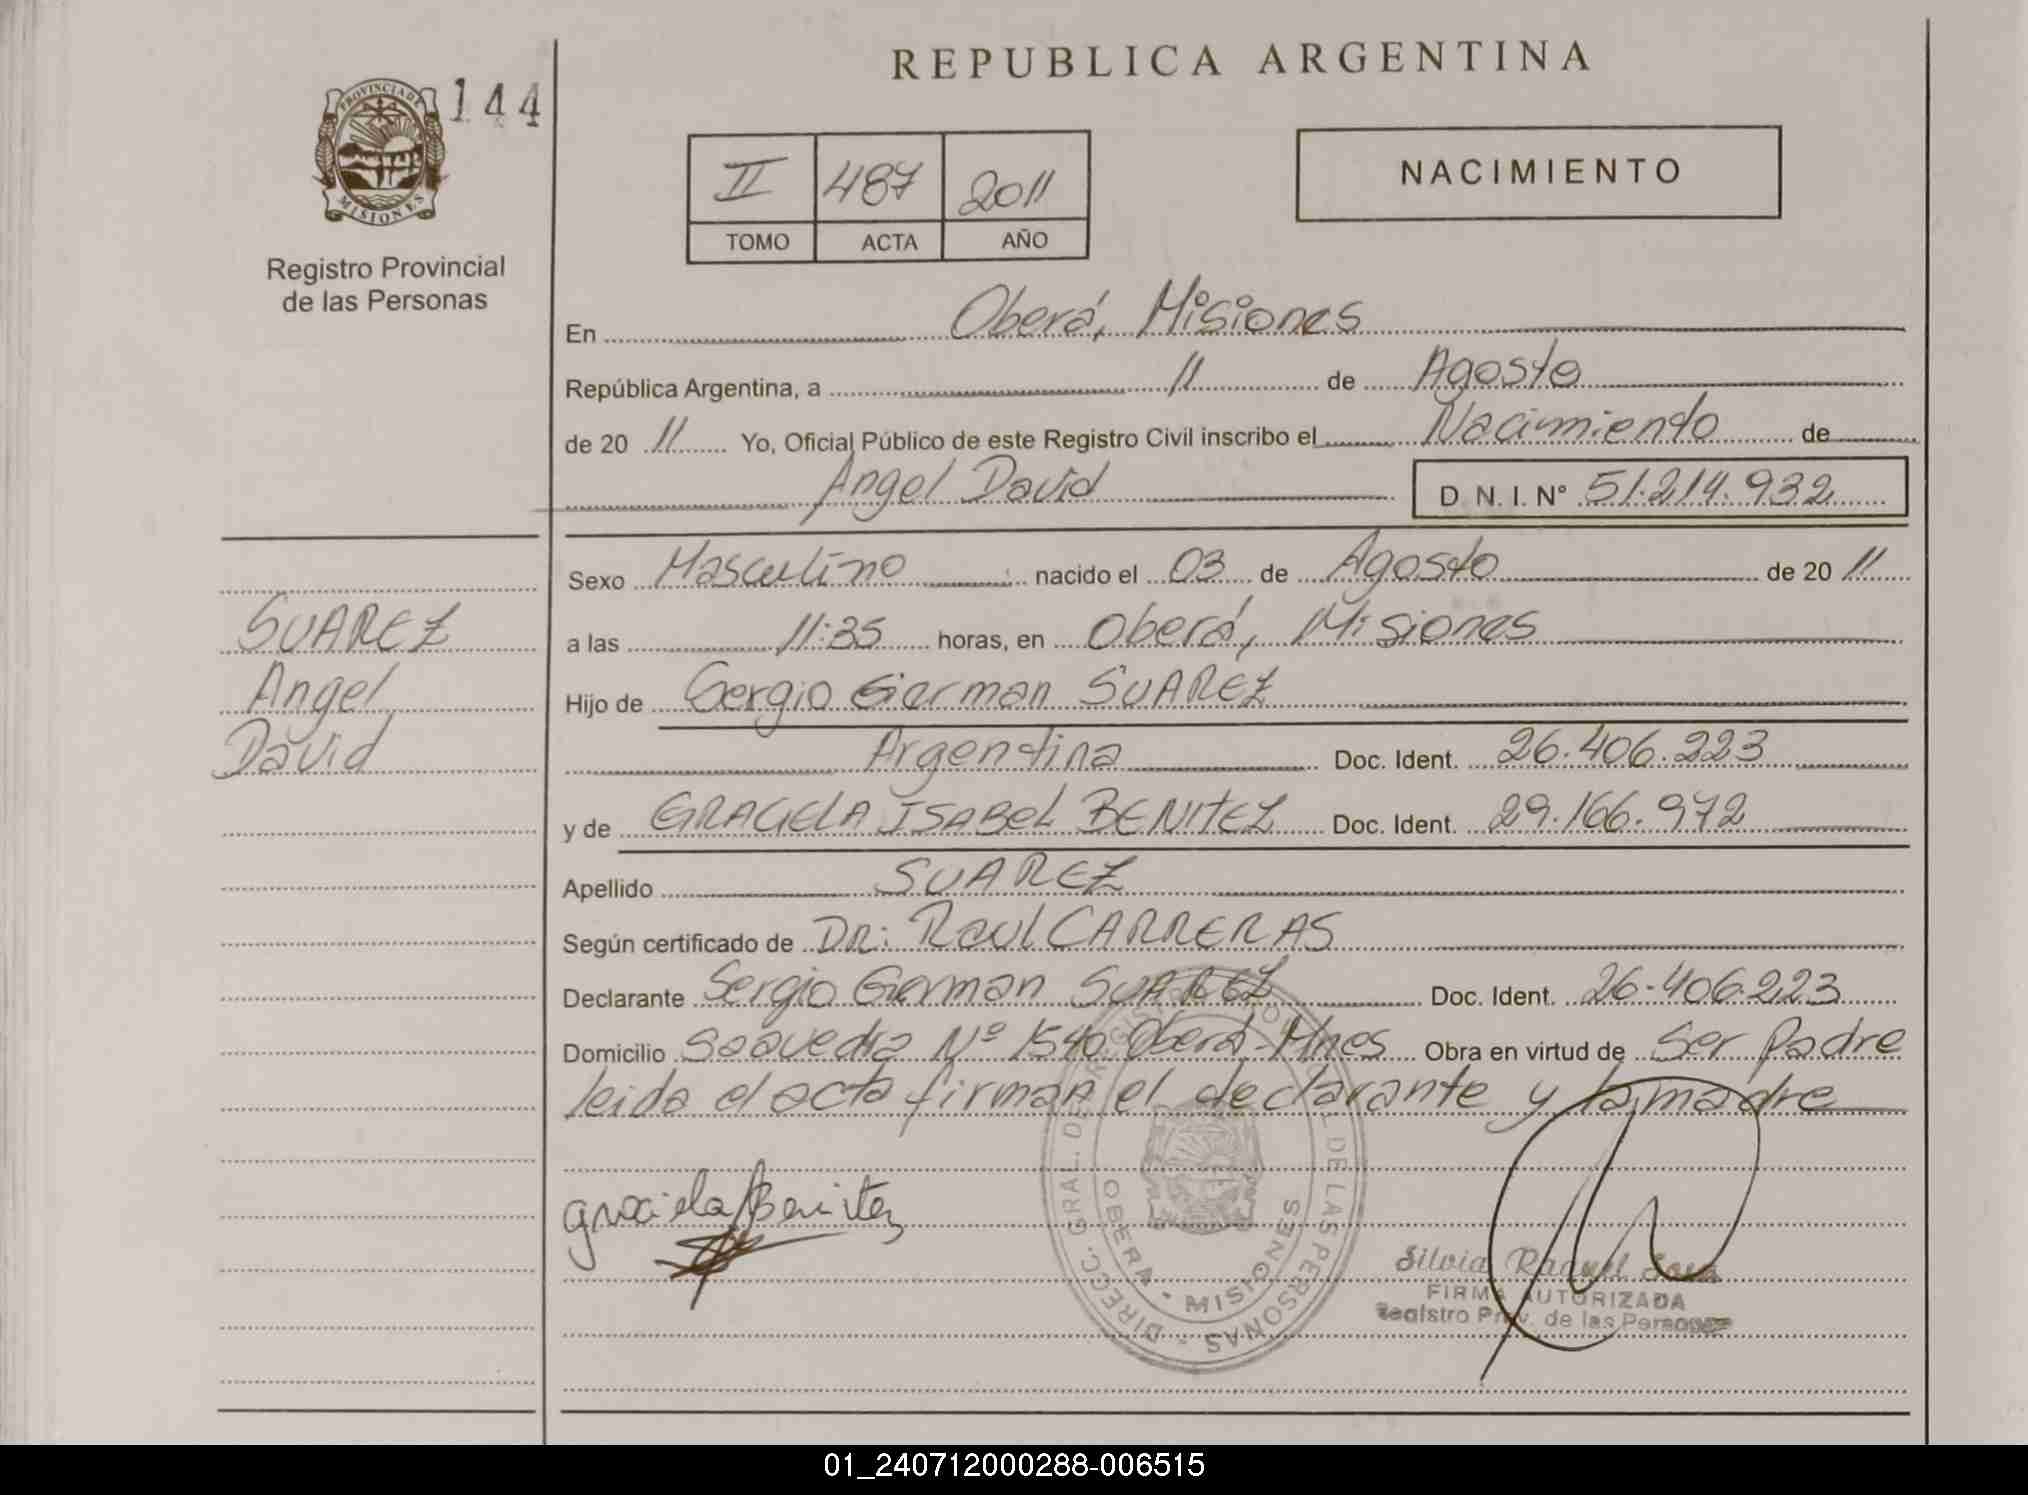 REPUBLICA ARGENTINA
144
PROVINCIA DE
MISIONES
Registro Provincial
de las Personas
II 487 2011
TOMO ACTA AÑO
NACIMIENTO
En Oberá, Misiones
República Argentina, a 11 de Agosto
de 20 11 Yo, Oficial Público de este Registro Civil inscribo el Nacimiento de
Angel David D. N. I. N° 51.214.932
Sexo Masculino nacido el 03 de Agosto de 20 11
a las 11:35 horas, en Oberá, Misiones
Hijo de Sergio German SUAREZ
Argentina Doc. Ident. 26.406.223
y de GRACIELA ISABEL BENITEZ Doc. Ident. 29.166.972
Apellido SUAREZ
Según certificado de DR: Raul CARRERAS
Declarante Sergio German SUAREZ Doc. Ident. 26.406.223
Domicilio Saavedra Nº 1540 Oberá-Mnes Obra en virtud de Ser Padre
leida el acta firman el declarante y la madre
SUAREZ
Angel
David
graciela Benitez
DIRECC. GRAL. DE REGISTRO PROVINCIAL DE LAS PERSONAS
OBERA - MISIONES
Silvia Raquel
FIRMA AUTORIZADA
Registro Prov. de las Personas
01_240712000288-006515